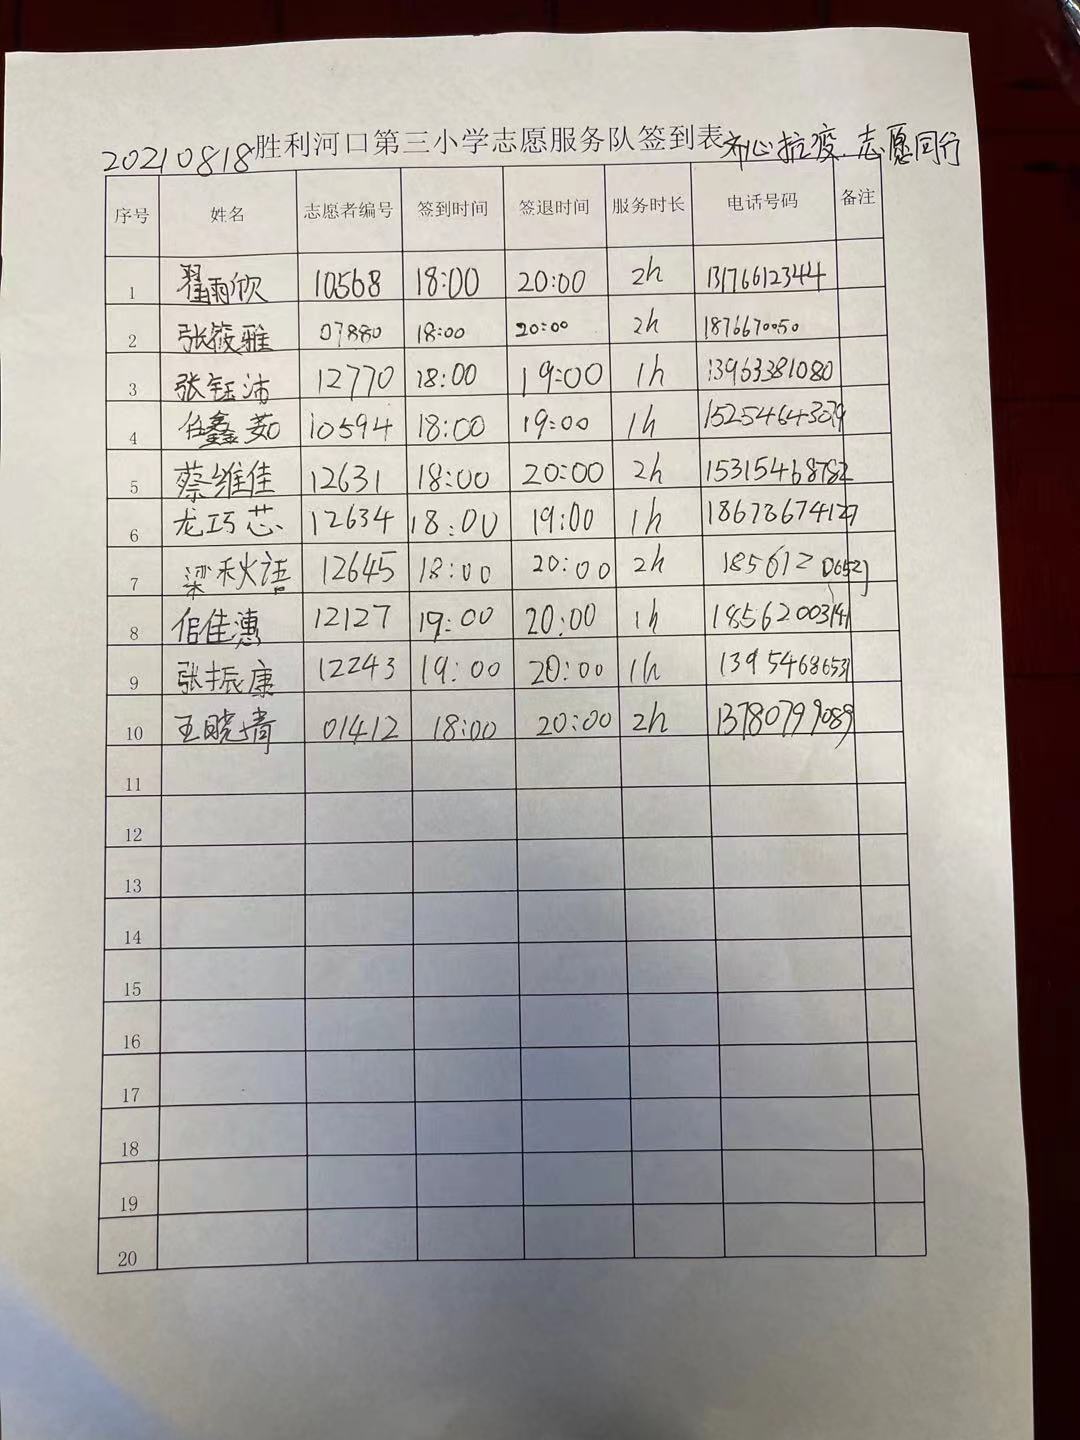 20210818 胜利河口第三小学志愿服务队签到表 齐心抗疫.志愿同行
序号 姓名 志愿者编号 签到时间 签退时间 服务时长 电话号码 备注
1 翟雨欣 10568 18:00 20:00 2h 13176612344
2 张筱雅 07880 18:00 20:00 2h 1876670050
3 张钰沛 12770 18:00 19:00 1h 13963381080
4 任鑫茹 10594 18:00 19:00 1h
5 蔡维佳 12631 18:00 20:00 2h 15315468782
6 龙巧芯 12634 18:00 19:00 1h 18678674127
7 梁秋语 12645 18:00 20:00 2h
8 佳惠 12127 19:00 20:00 1h
9 张振康 12243 19:00 20:00 1h 13954686531
10 王晓倩 01412 18:00 20:00 2h 13780799089
11
12
13
14
15
16
17
18
19
20